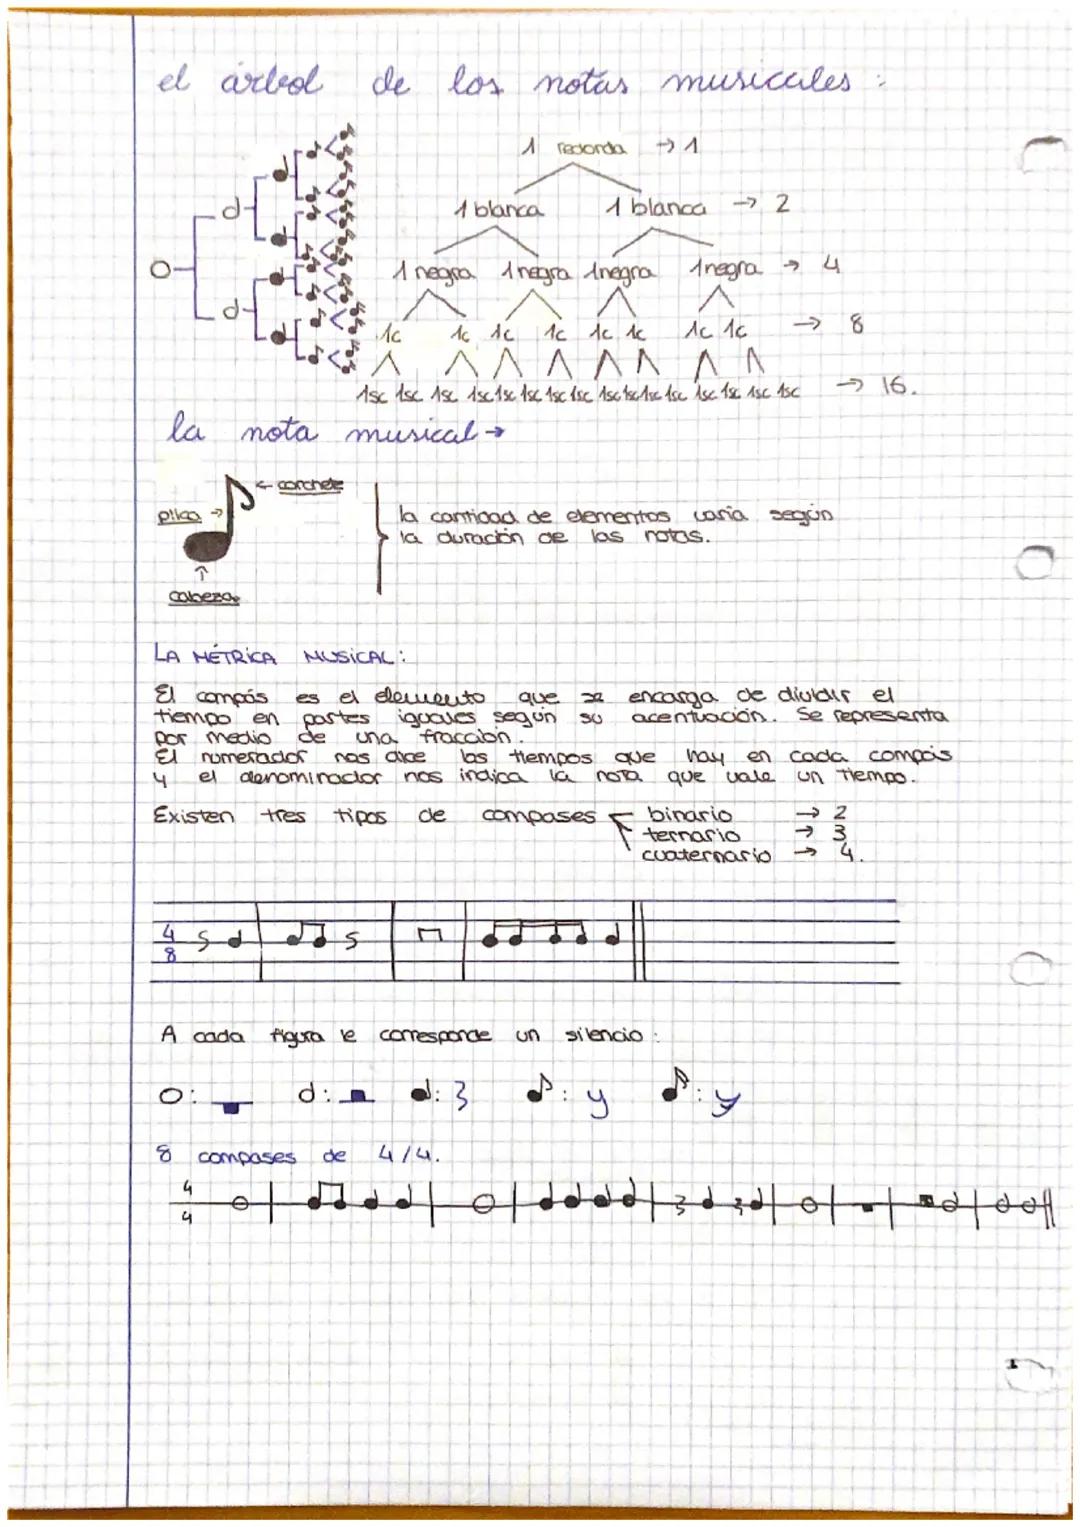 el árbol de las notas musicales :
1 redonda → 1
1 blanca 1 blanca → 2
1 negra 1 negra 1 negra 1 negra → 4
1c 1c 1c 1c 1c 1c 1c 1c → 8
1sc 1sc 1sc 1sc 1sc 1sc 1sc 1sc 1sc 1sc 1sc 1sc 1sc 1sc 1sc 1sc → 16.
la nota musical →
← corchete
plica →
la cantidad de elementos varia según
la duración de las notas.
cabeza
LA MÉTRICA MUSICAL:
El compás es el elemento que se encarga de dividir el
tiempo en partes iguales según su acentuación. Se representa
por medio de una fracción.
El numerador nos dice los tiempos que hay en cada compás
y el denominador nos indica la nota que vale un tiempo.
Existen tres tipos de compases binario → 2
ternario → 3
cuaternario → 4.
4
8
A cada figura le corresponde un silencio :
8 compases de 4/4.
4
4